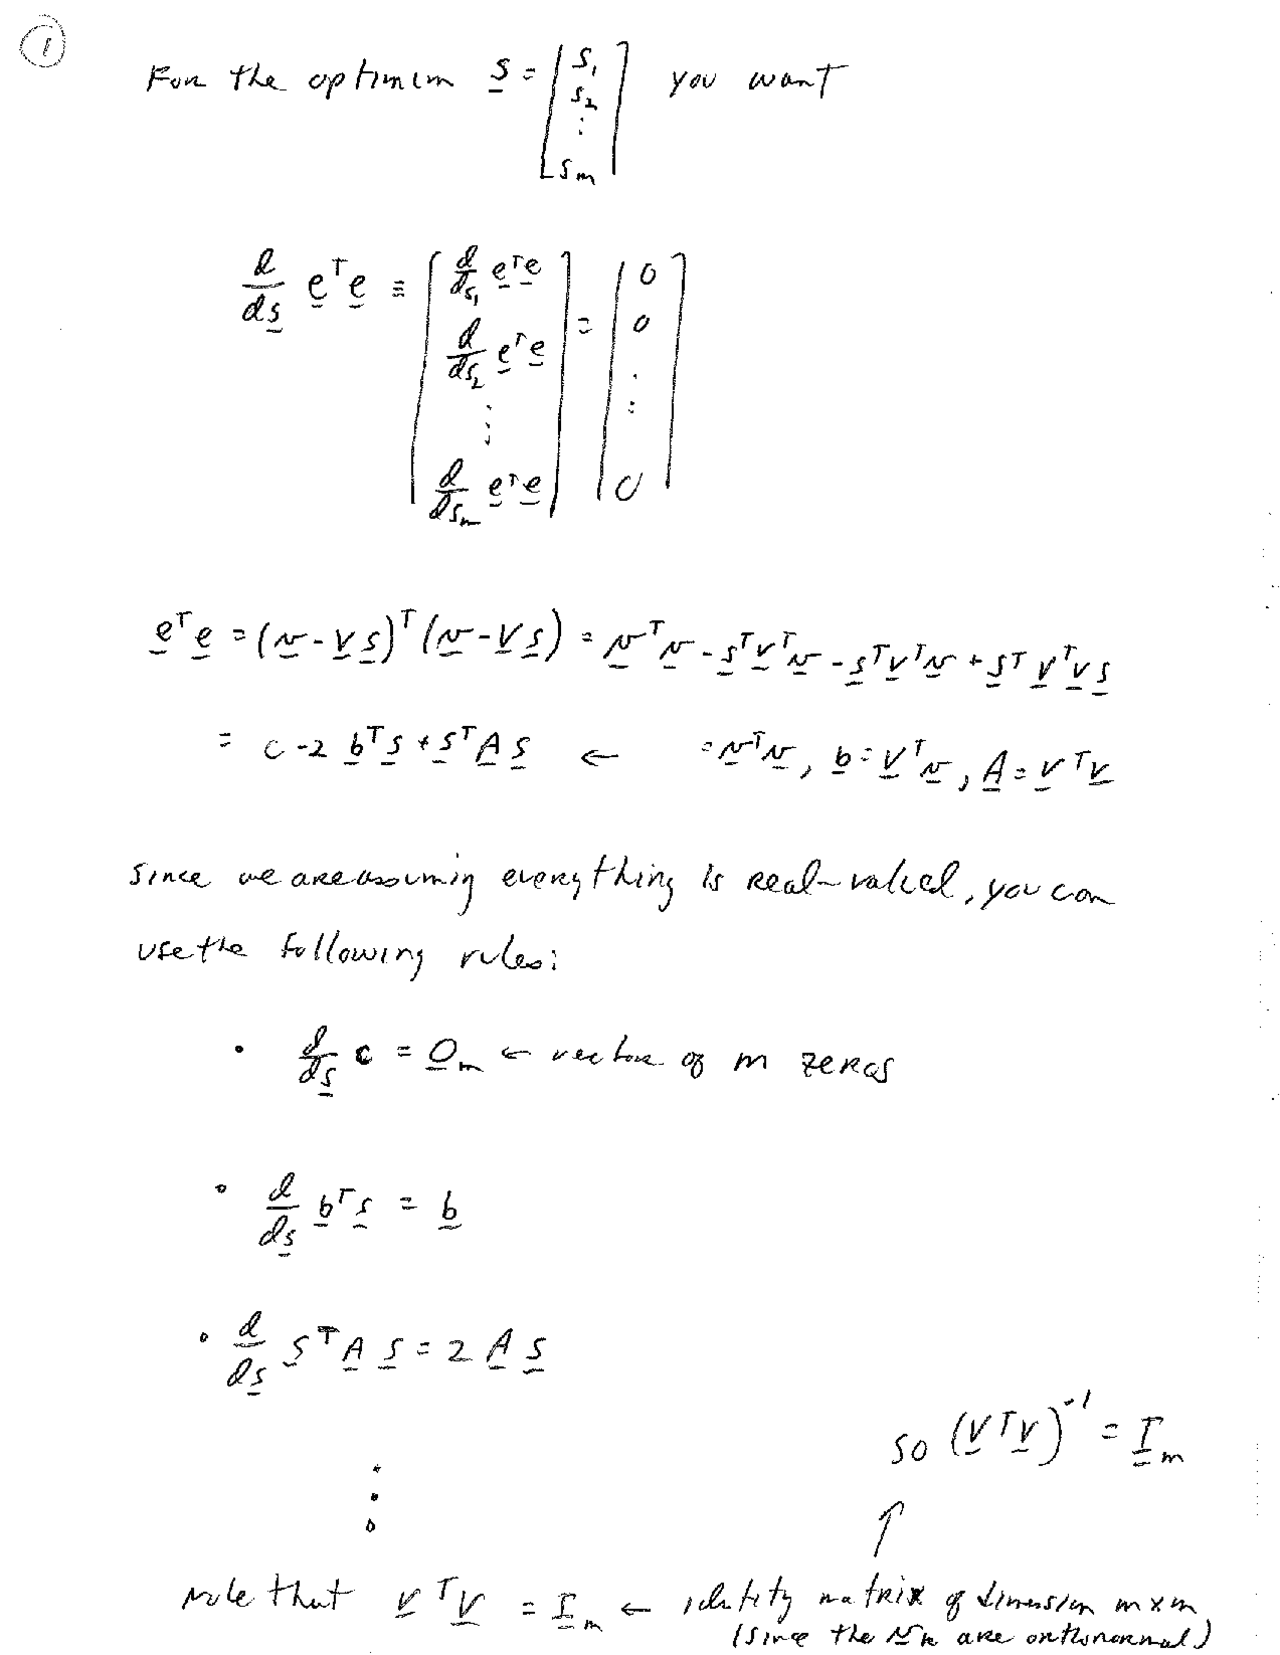 ①
For the optimum s̲ = [s₁ s₂ ⋮ sₘ] you want
d/ds̲ e̲ᵀe̲ ≡ [d/ds₁ e̲ᵀe̲ d/ds₂ e̲ᵀe̲ ⋮ d/dsₘ e̲ᵀe̲] = [0 0 ⋮ 0]
e̲ᵀe̲ = (v̲ - V̲ s̲)ᵀ (v̲ - V̲ s̲) = v̲ᵀv̲ - s̲ᵀV̲ᵀv̲ - s̲ᵀV̲ᵀv̲ + s̲ᵀV̲ᵀV̲ s̲
= c - 2 b̲ᵀs̲ + s̲ᵀA̲ s̲ ← = v̲ᵀv̲, b̲ = V̲ᵀv̲, A̲ = V̲ᵀV̲
Since we are assuming everything is real-valued, you can
use the following rules:
• d/ds̲ c = 0̲ₘ ← vector of m zeros
• d/ds̲ b̲ᵀs̲ = b̲
• d/ds̲ s̲ᵀA̲ s̲ = 2 A̲ s̲
so (V̲ᵀV̲)⁻¹ = I̲ₘ
⋮ ↑
Note that V̲ᵀV̲ = I̲ₘ ← identity matrix of dimension m x m
(since the v̲ₖ are orthonormal)